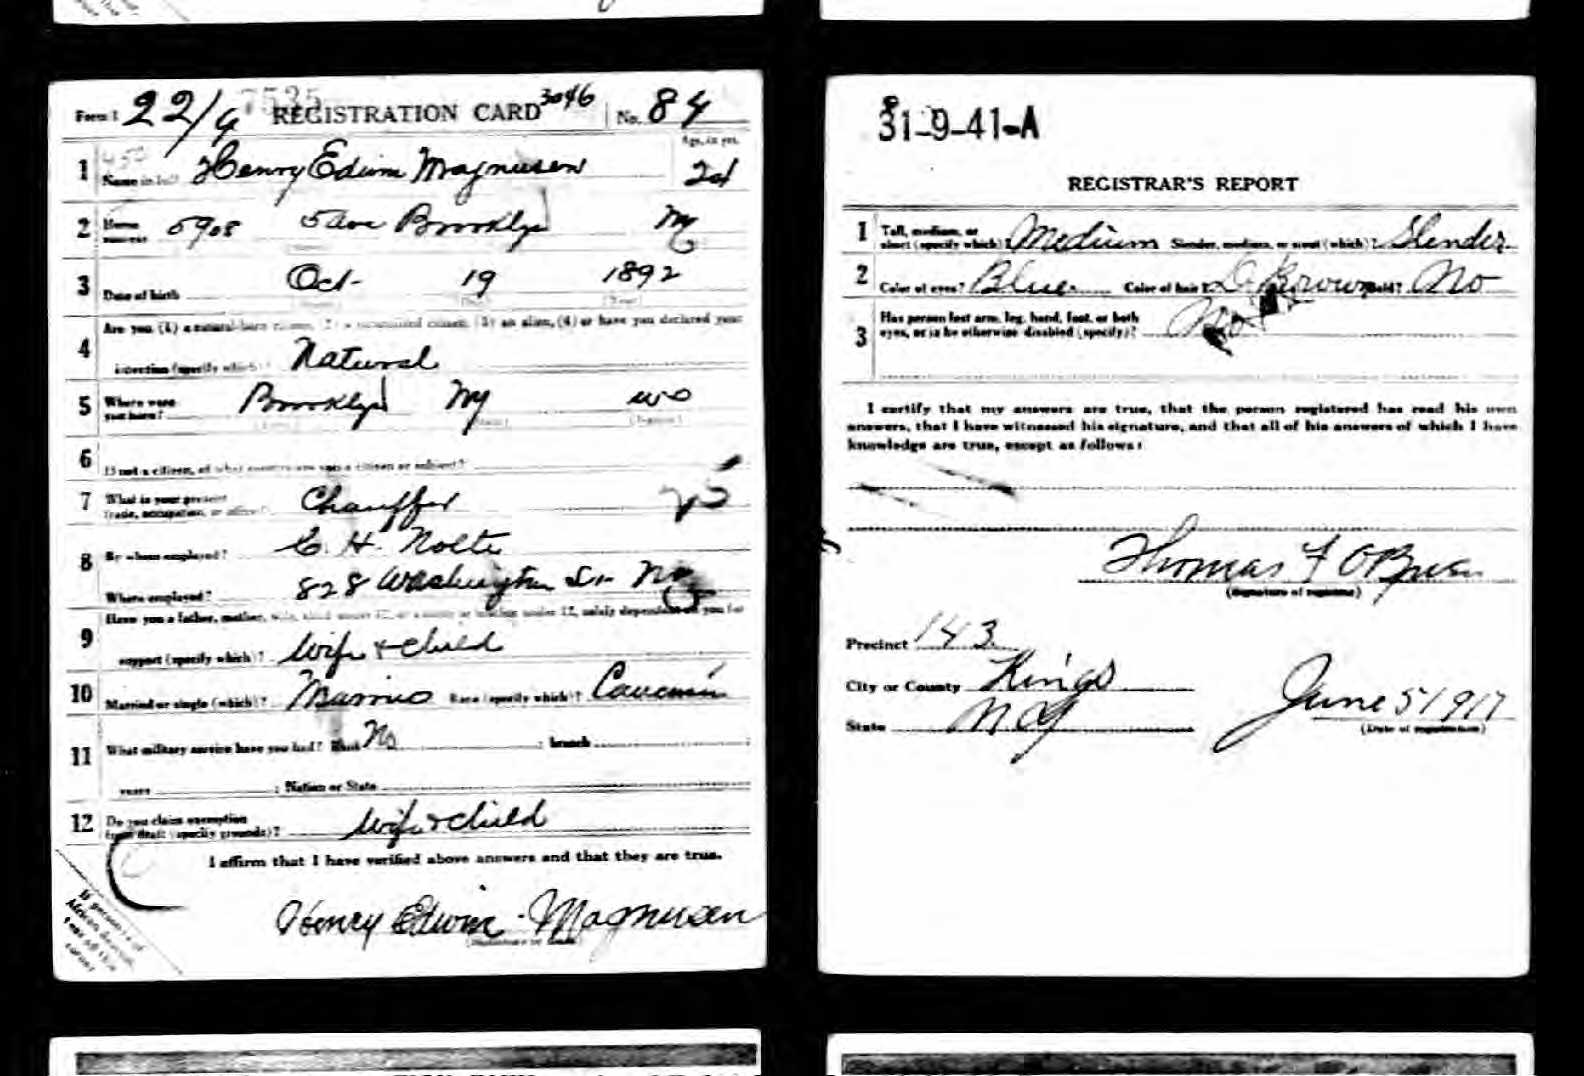 Form 1 22/9 7535 REGISTRATION CARD 3046 No. 84
Age, in yrs.
1 Name in full Henry Edwin Magnusen 24
2 Home address 5908 5 Ave Brooklyn NY
3 Date of birth Oct- 19 1892
4 Are you (1) a natural-born citizen, (2) a naturalized citizen, (3) an alien, (4) or have you declared your
intention (specify which)? Natural
5 Where were you born? Brooklyn NY USA
6 If not a citizen, of what country are you a citizen or subject?
7 What is your present trade, occupation, or office? Chauffer 25
8 By whom employed? C. H. Nolte
Where employed? 828 Washington St. NY
9 Have you a father, mother, wife, child under 12, or a sister or brother under 12, solely dependent on you for
support (specify which)? Wife + child
10 Married or single (which)? Married Race (specify which)? Caucasian
11 What military service have you had? Rank No ; branch ;
years ; Nation or State
12 Do you claim exemption from draft (specify grounds)? Wife + child
I affirm that I have verified above answers and that they are true.
Henry Edwin Magnusen
(Signature or mark)
If person is of African descent, tear off this corner
31-9-41-A
REGISTRAR'S REPORT
1 Tall, medium, or short (specify which)? Medium Slender, medium, or stout (which)? Slender
2 Color of eyes? Blue Color of hair? D. Brown Bald? No
3 Has person lost arm, leg, hand, foot, or both eyes, or is he otherwise disabled (specify)? No
I certify that my answers are true, that the person registered has read his own
answers, that I have witnessed his signature, and that all of his answers of which I have
knowledge are true, except as follows:
Thomas F O'Brien
(Signature of registrar)
Precinct 143
City or County Kings
State NY
June 5 1917
(Date of registration)